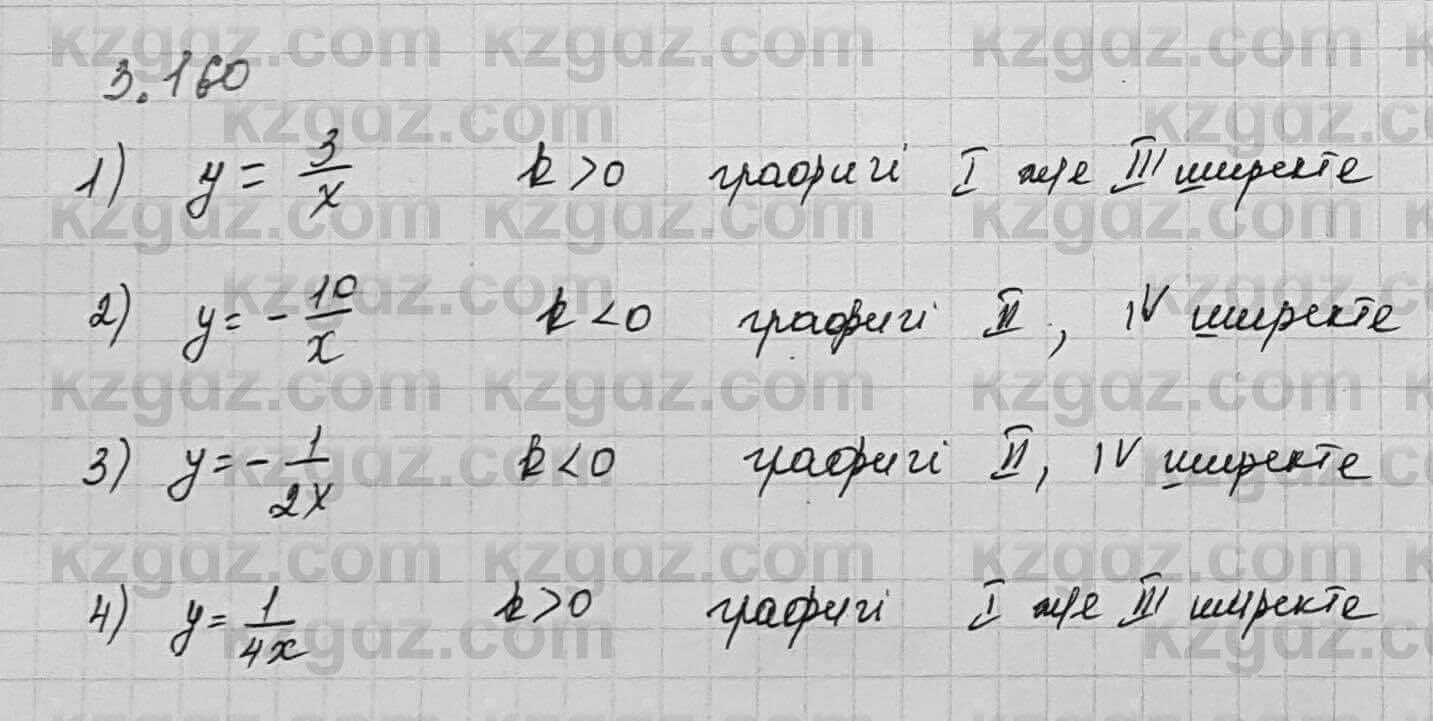 3.160
1) y = 3/x k > 0 графигі I және III ширекте
2) y = -10/x k < 0 графигі II, IV ширекте
3) y = -1/2x k < 0 графигі II, IV ширекте
4) y = 1/4x k > 0 графигі I және III ширекте
kzgdz.com